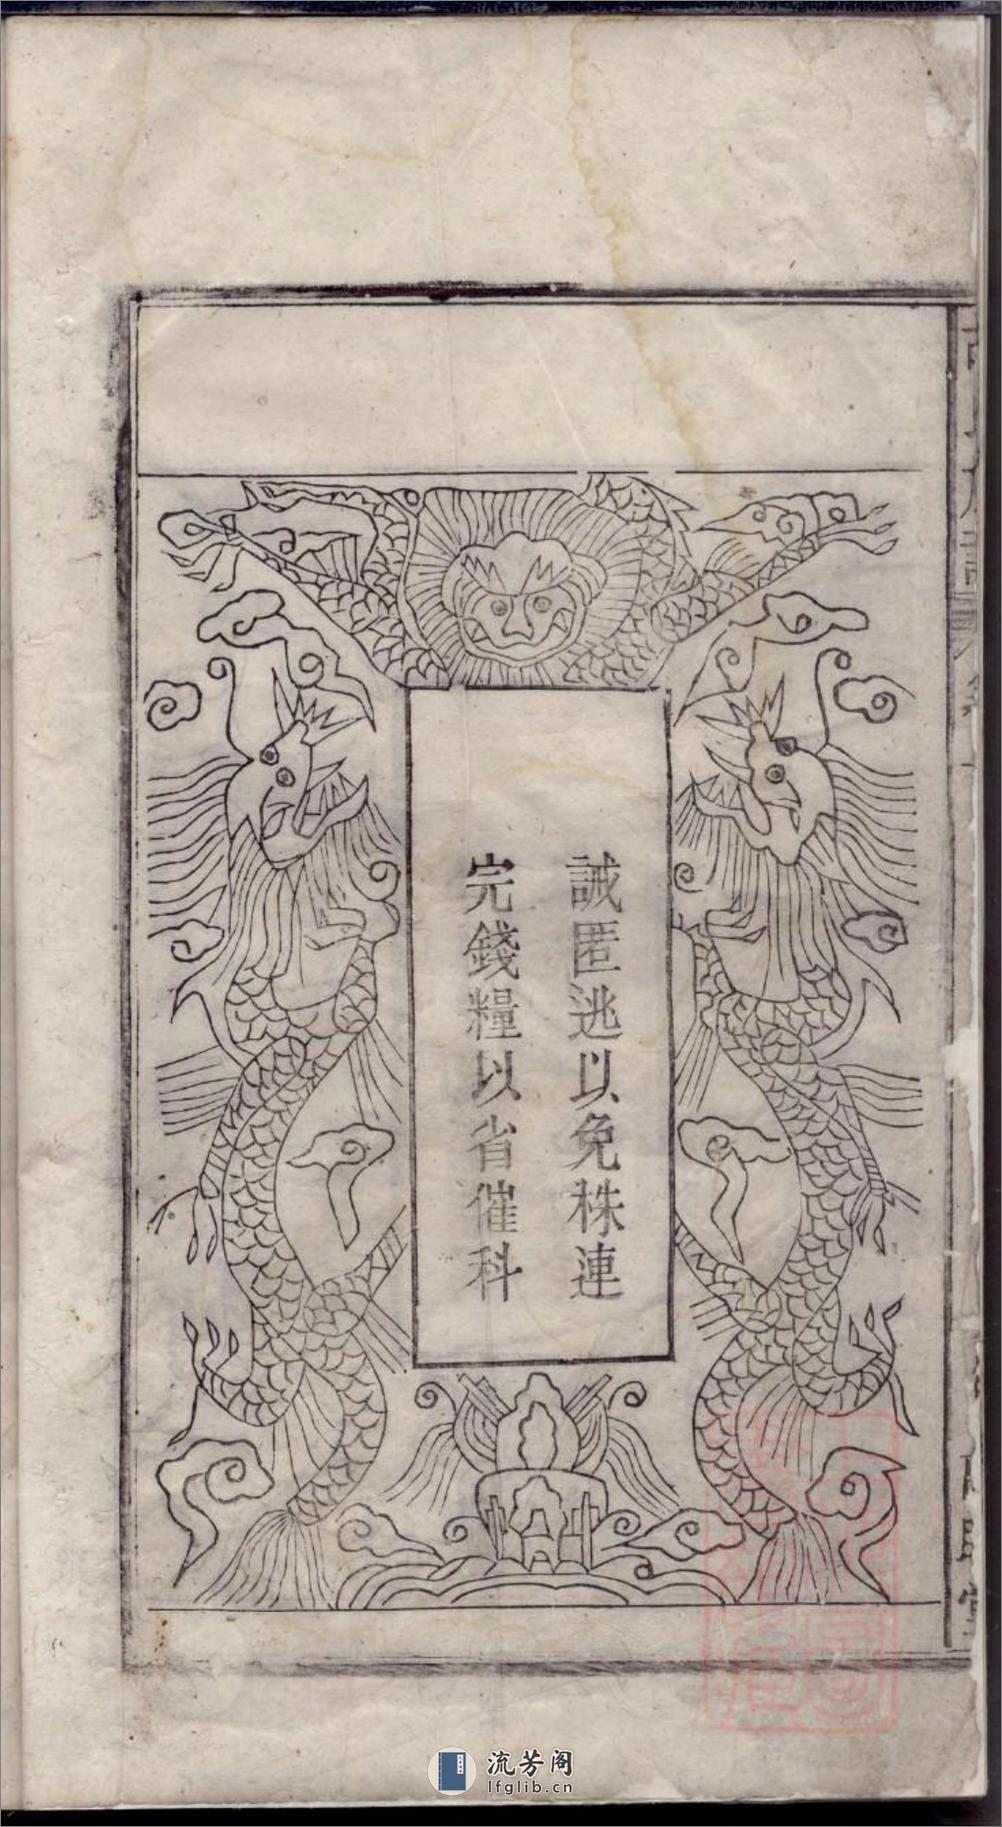 誡匿逃以免株連
完錢糧以省催科
流芳阁
lfglib.cn